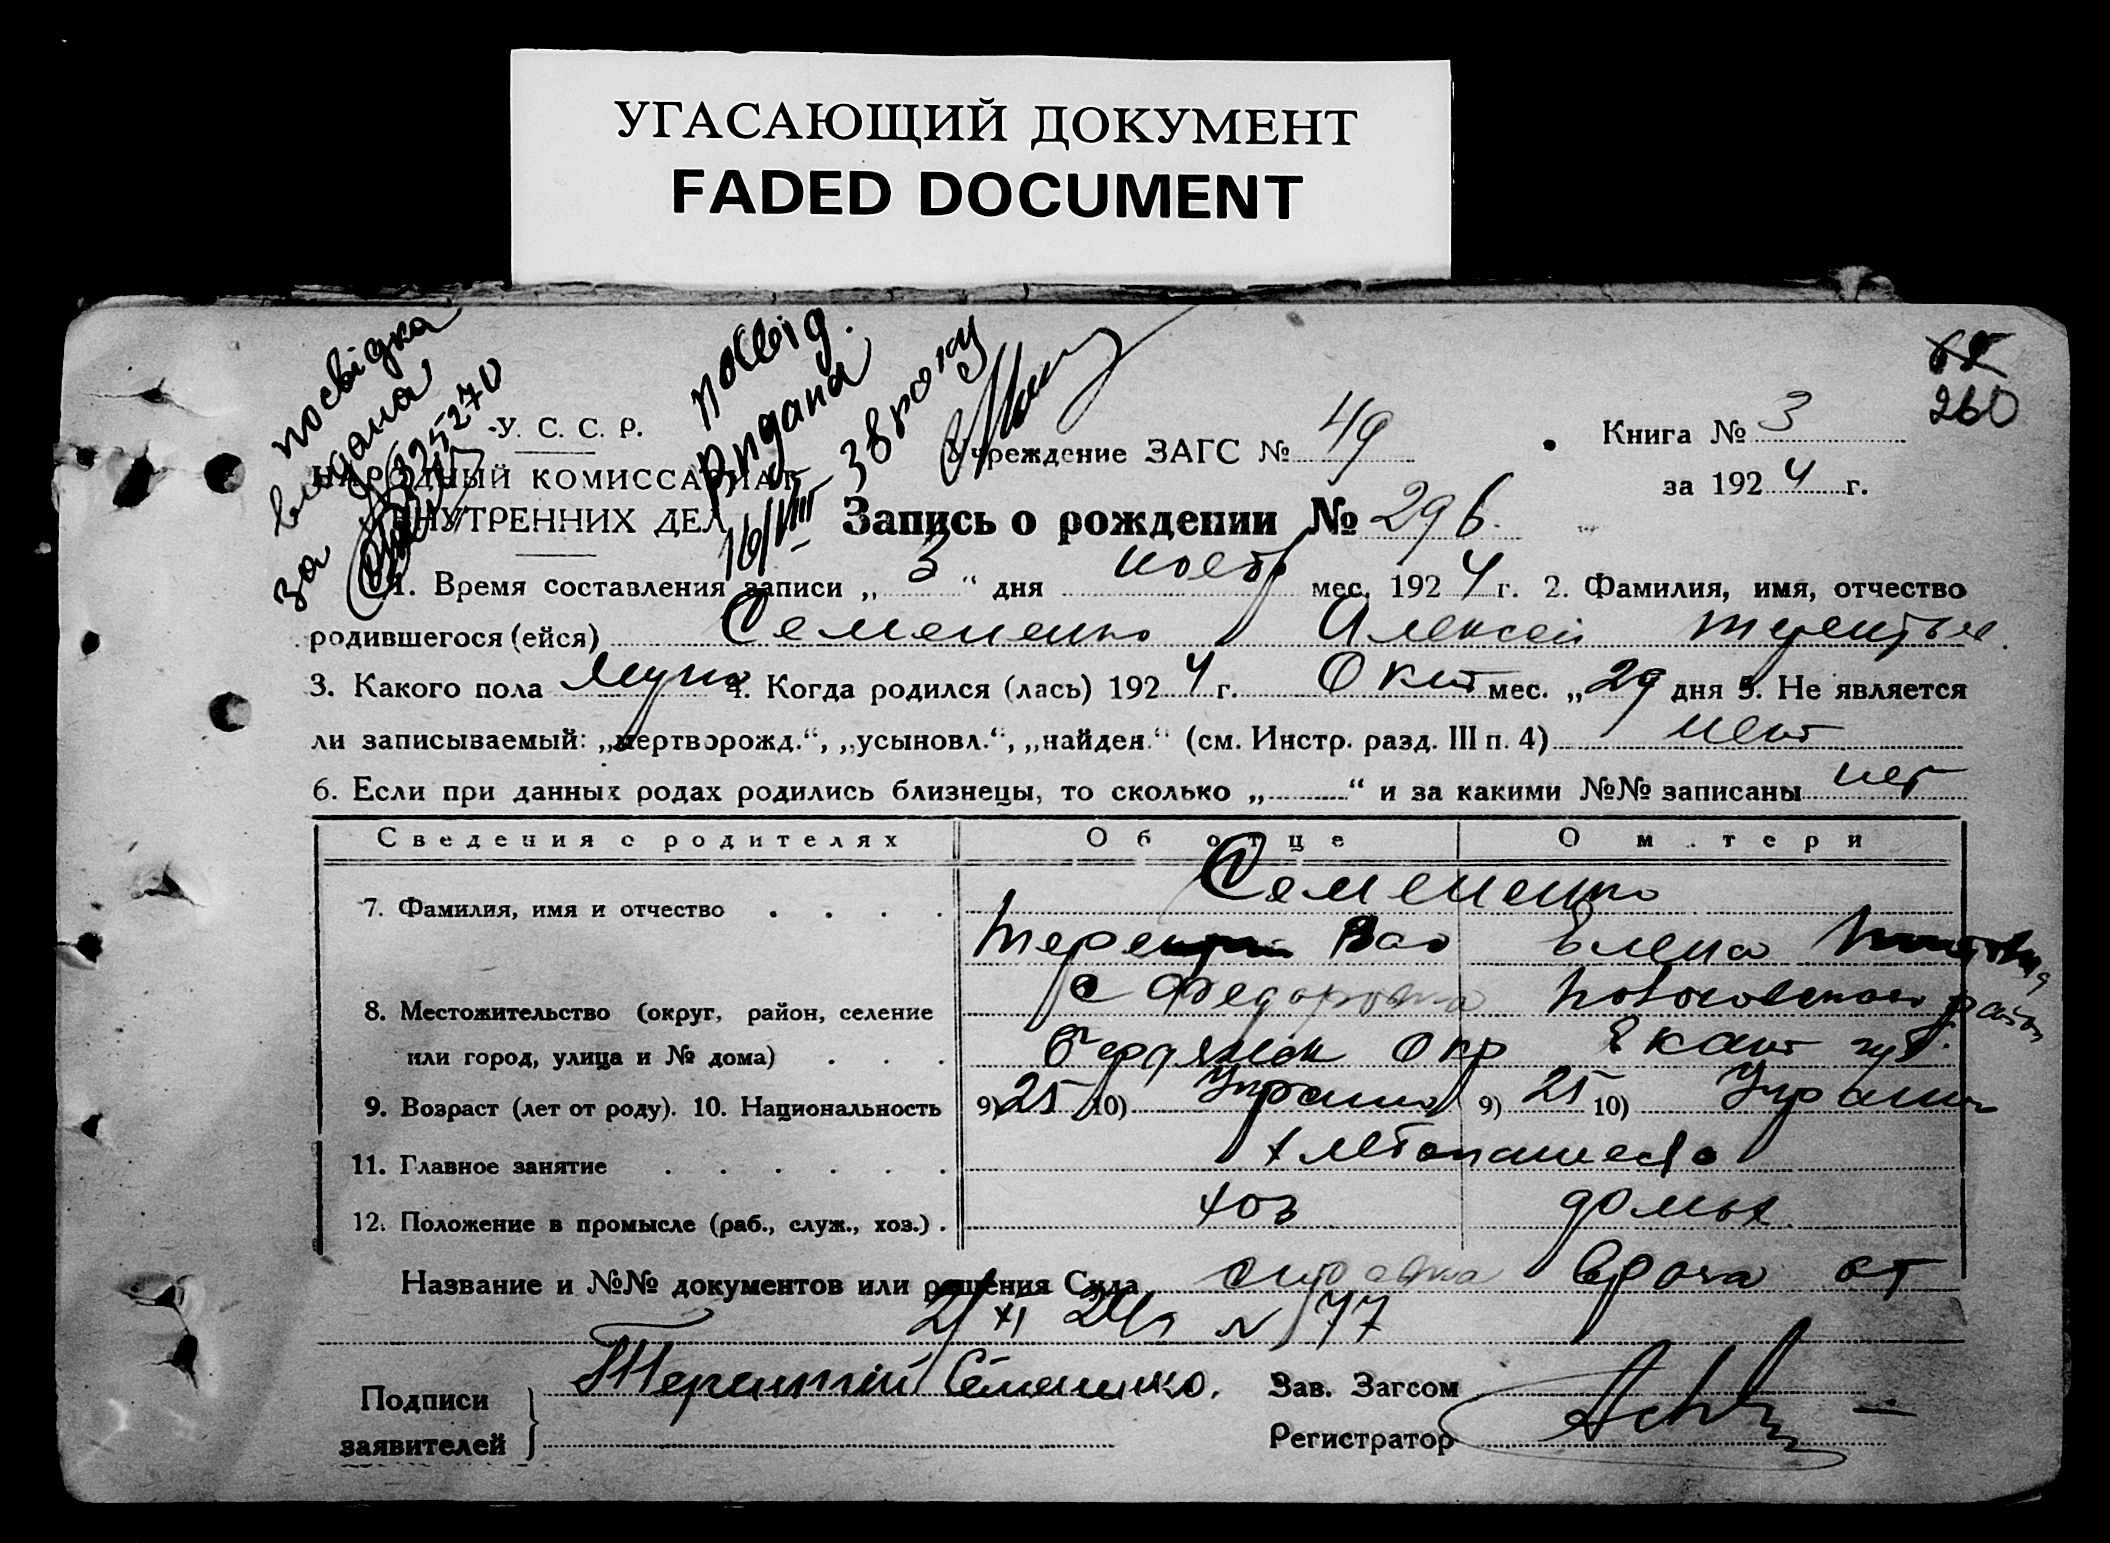 УГАСАЮЩИЙ ДОКУМЕНТ
FADED DOCUMENT
посвідка
видана
за
посвід.
видана
16/VIII 38 року
65
260
У. С. С. Р.
НАРОДНЫЙ КОМИССАРИАТ
ВНУТРЕННИХ ДЕЛ
Учреждение ЗАГС № 49
Книга № 3
за 1924 г.
Запись о рождении № 296.
1. Время составления записи „3“ дня нояб мес. 1924 г. 2. Фамилия, имя, отчество
родившегося (ейся) Семененко Алексей Терентьев.
3. Какого пола Мужс 4. Когда родился (лась) 1924 г. Окт мес. „29 дня 5. Не является
ли записываемый: „мертворожд.“, „усыновл.“, „найден.“ (см. Инстр. разд. III п. 4) нет
6. Если при данных родах родились близнецы, то сколько „ “ и за какими №№ записаны нет
Сведения о родителях Об отце О м.тери
7. Фамилия, имя и отчество . . . . Семененко
Терентий Вас Елена
8. Местожительство (округ, район, селение с Федоровка район
или город, улица и № дома) . . . Бердянск Окр Екат губ.
9. Возраст (лет от роду). 10. Национальность 9) 25 10) Украин 9) 25 10) Украин
11. Главное занятие . . . . . . Хлебопашество
12. Положение в промысле (раб., служ., хоз.) . хоз домох.
Название и №№ документов или решения Суда справка врача от
2/XI 24 г № 77
Подписи
заявителей
Терентій Семененко.
Зав. Загсом
Регистратор